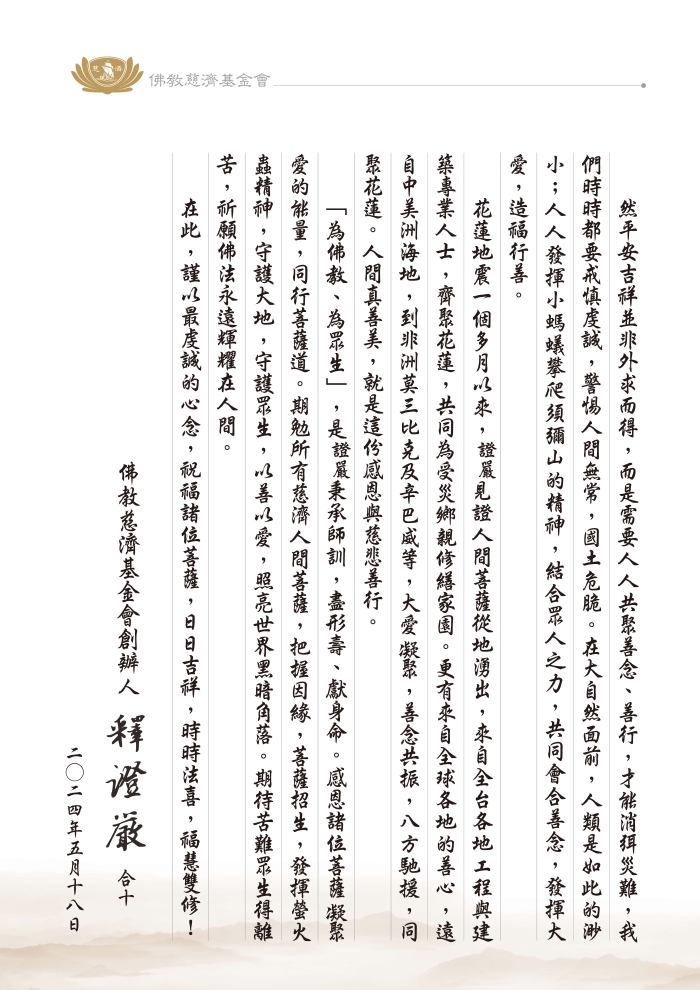 佛教慈濟基金會
然平安吉祥並非外求而得，而是需要人人共聚善念、善行，才能消弭災難，我
們時時都要戒慎虔誠，警惕人間無常，國土危脆。在大自然面前，人類是如此的渺
小；人人發揮小螞蟻攀爬須彌山的精神，結合眾人之力，共同會合善念，發揮大
愛，造福行善。
花蓮地震一個多月以來，證嚴見證人間菩薩從地湧出，來自全台各地工程與建
築專業人士，齊聚花蓮，共同為受災鄉親修繕家園。更有來自全球各地的善心，遠
自中美洲海地，到非洲莫三比克及辛巴威等，大愛凝聚，善念共振，八方馳援，同
聚花蓮。人間真善美，就是這份感恩與慈悲善行。
「為佛教、為眾生」，是證嚴秉承師訓，盡形壽、獻身命。感恩諸位菩薩凝聚
愛的能量，同行菩薩道。期勉所有慈濟人間菩薩，把握因緣，菩薩招生，發揮螢火
蟲精神，守護大地，守護眾生，以善以愛，照亮世界黑暗角落。期待苦難眾生得離
苦，祈願佛法永遠輝耀在人間。
在此，謹以最虔誠的心念，祝福諸位菩薩，日日吉祥，時時法喜，福慧雙修！
佛教慈濟基金會創辦人 釋證嚴 合十
二〇二四年五月十八日